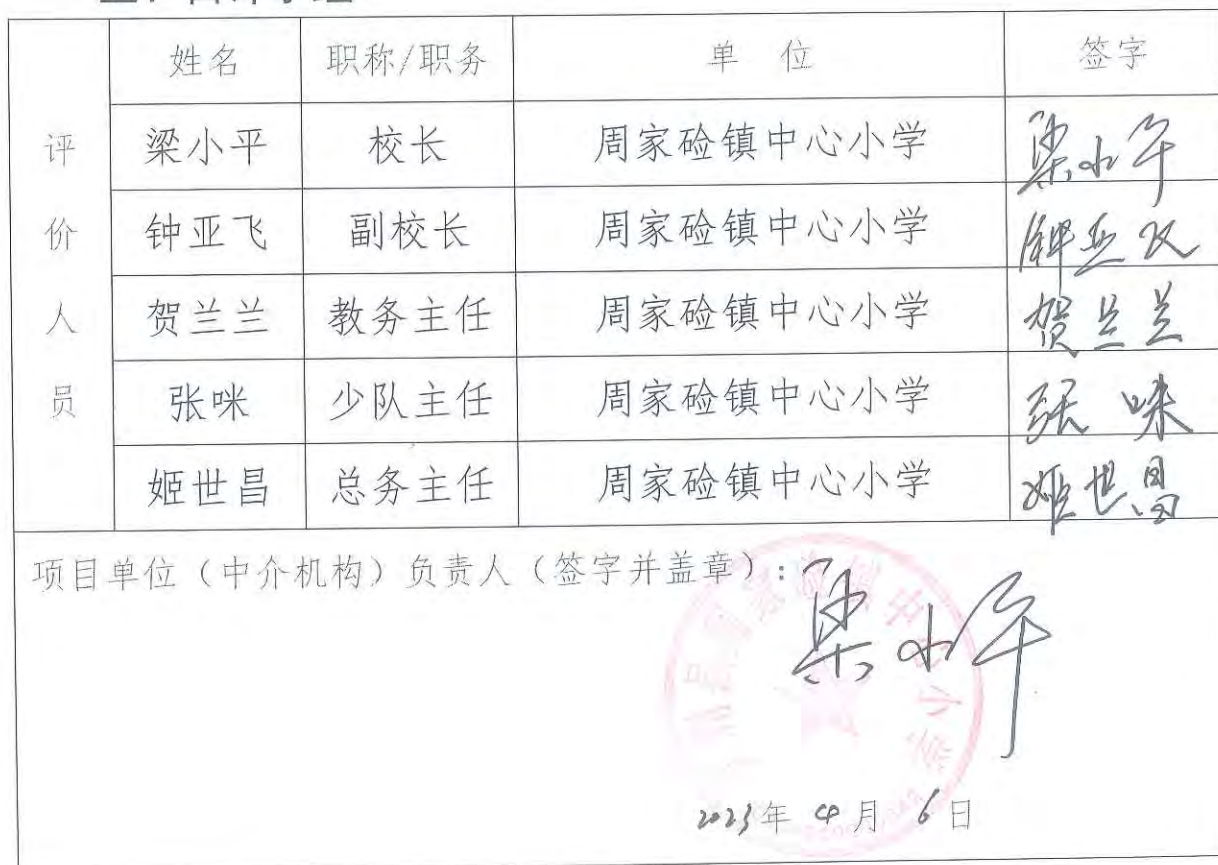 姓名 职称/职务 单 位 签字
评价人员
梁小平 校长 周家硷镇中心小学 梁小平
钟亚飞 副校长 周家硷镇中心小学 钟亚飞
贺兰兰 教务主任 周家硷镇中心小学 贺兰兰
张咪 少队主任 周家硷镇中心小学 张咪
姬世昌 总务主任 周家硷镇中心小学 姬世昌
项目单位（中介机构）负责人（签字并盖章）：
梁小平
2023年 4月 6日